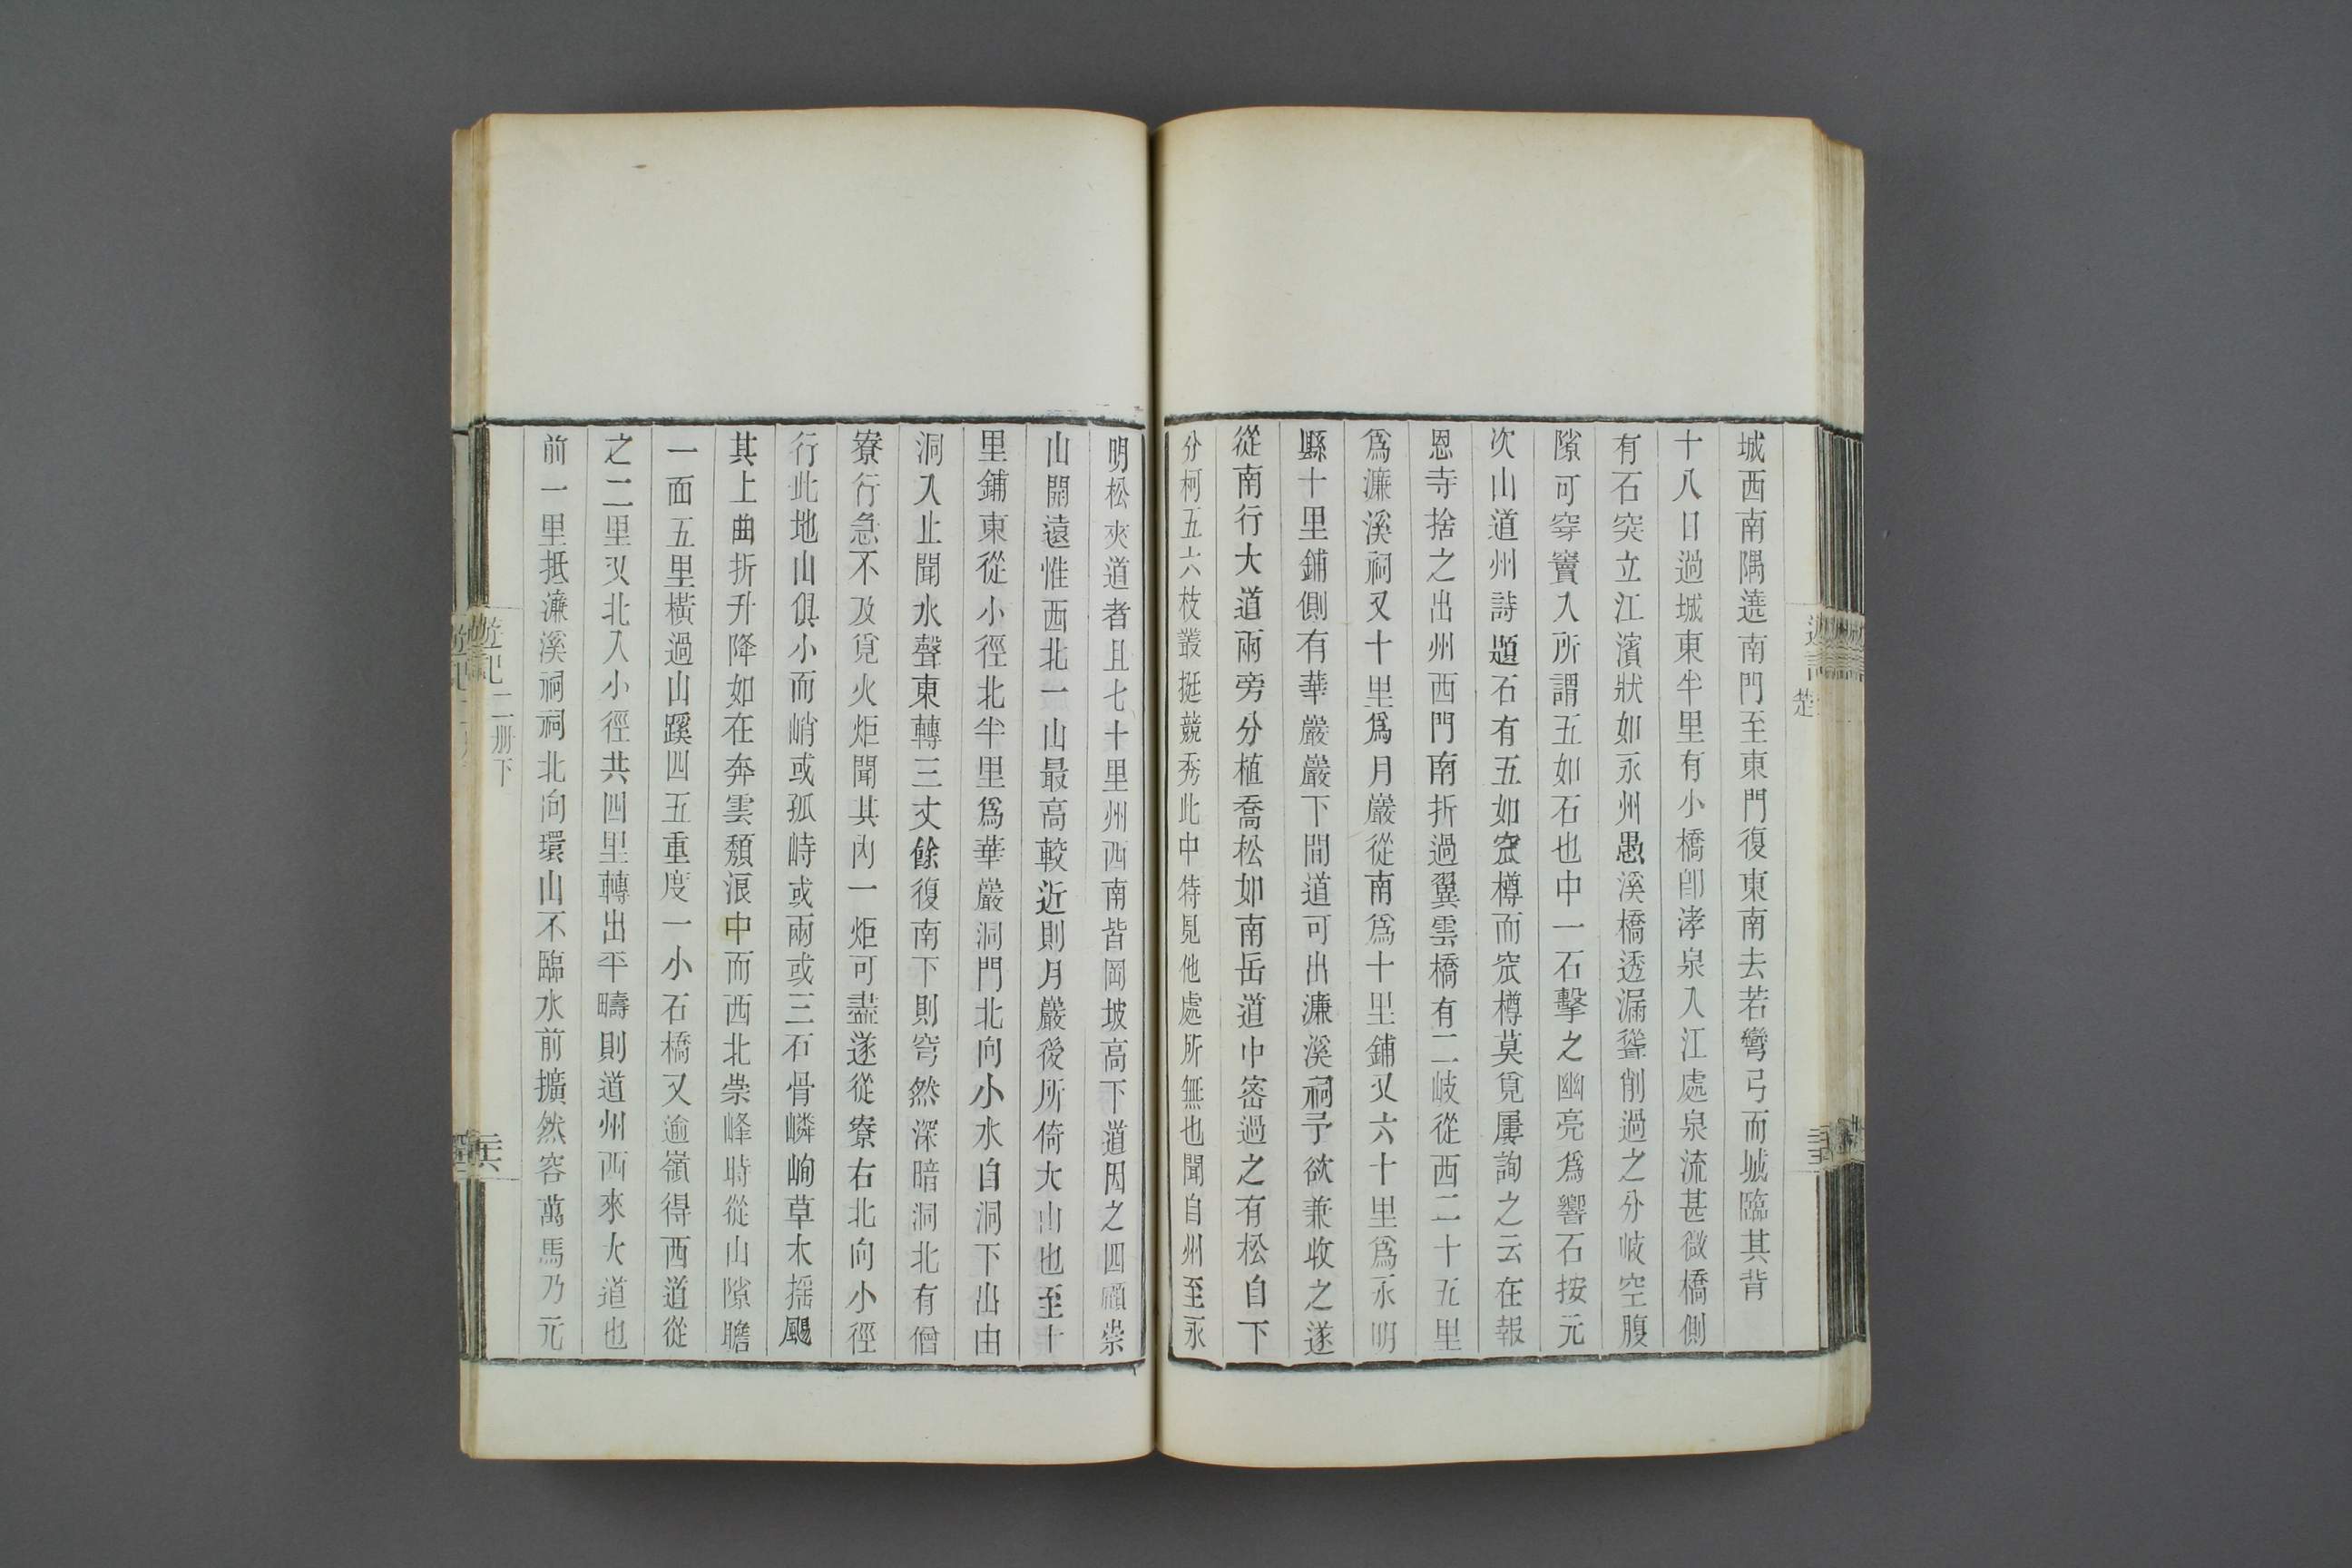 城西南隅遶南門至東門復東南去若彎弓而城臨其背
十八日過城東半里有小橋卽涍泉入江處泉流甚微橋側
有石突立江濱狀如永州愚溪橋透漏聳削過之分岐空腹
隙可穿竇入所謂五如石也中一石擊之幽亮爲響石按元
次山道州詩題石有五如窊樽而窊樽莫覓屢詢之云在報
恩寺捨之出州西門南折過翼雲橋有二岐從西二十五里
爲濂溪祠又十里爲月巖從南爲十里鋪又六十里爲永明
縣十里鋪側有華巖巖下間道可出濂溪祠予欲兼收之遂
從南行大道兩旁分植喬松如南岳道中宻過之有松自下
分柯五六枝叢挺競秀此中特見他處所無也聞自州至永
明松夾道者且七十里州西南皆岡坡高下道因之四顧崇
山開遠惟西北一山最高較近則月巖後所倚大山也至十
里鋪東從小徑北半里爲華巖洞門北向小水自洞下出由
洞入止聞水聲東轉三丈餘復南下則穹然深暗洞北有僧
寮行急不及覓火炬聞其內一炬可盡遂從寮右北向小徑
行此地山俱小而峭或孤峙或兩或三石骨嶙峋草木搖颺
其上曲折升降如在奔雲頹浪中而西北崇峰時從山隙瞻
一面五里橫過山蹊四五重度一小石橋又逾嶺得西道從
之二里又北入小徑共四里轉出平疇則道州西來大道也
前一里抵濂溪祠祠北向環山不臨水前擴然容萬馬乃元
遊記 二册下